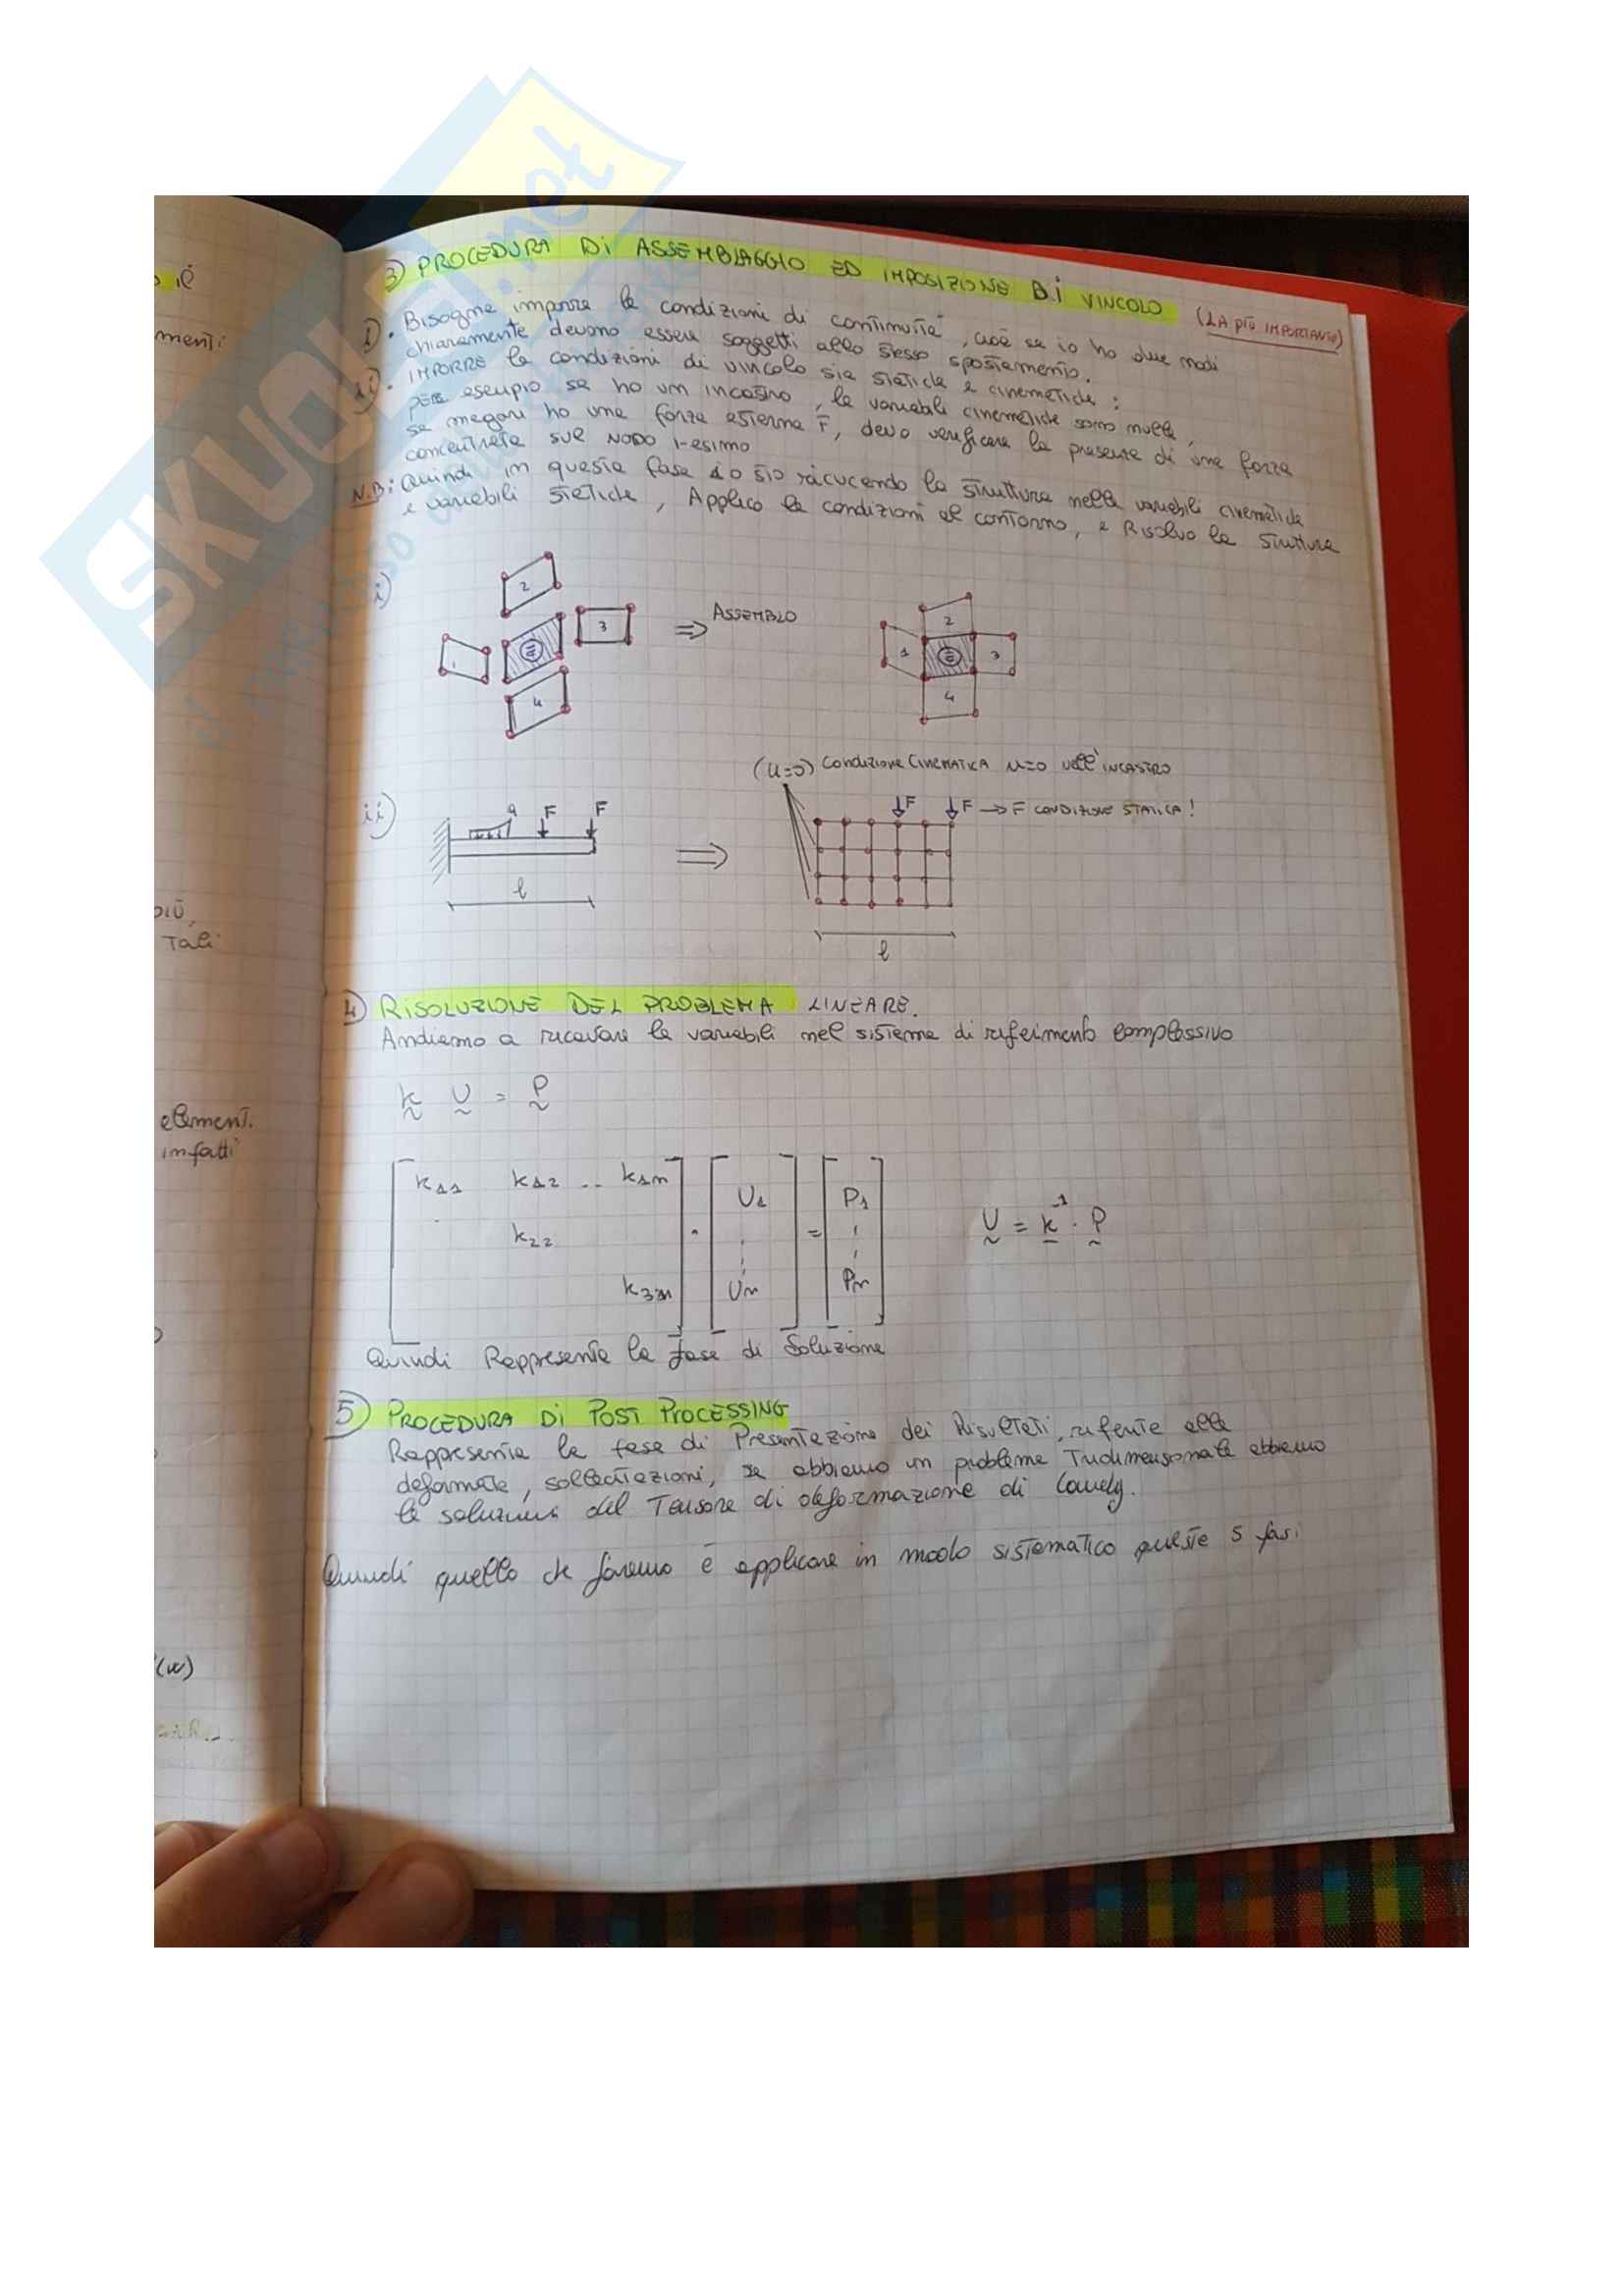 SKUOLA.net
3) PROCEDURA Di ASSEMBLAGGIO ED IMPOSIZIONE Di VINCOLO (LA più IMPORTANTE)
i) • Bisogna imporre le condizioni di continuità, cioè se io ho due nodi
chiaramente devono essere soggetti allo stesso spostamento.
ii) • IMPORRE le condizioni di vincolo sia statiche e cinematiche:
per esempio se ho un incastro, le variabili cinematiche sono nulle,
se magari ho una forza esterna F, devo verificare la presenza di una forza
concentrata sul NODO i-esimo
N.B: Quindi in questa fase io sto ricucendo la struttura nelle variabili cinematiche
e variabili statiche, Applico le condizioni al contorno, e Risolvo la struttura
i)
2
3
1
4
⇒ ASSEMBLO
2
1
3
4
(U=0) Condizione CINEMATICA u=0 nell'INCASTRO
ii)
q F F
l
⇒
F F → F CONDIZIONE STATICA!
l
4) RISOLUZIONE DEL PROBLEMA LINEARE.
Andiamo a ricavare le variabili nel sistema di riferimento complessivo
k U = P
k11 k12 .. k1n U1 P1
k22 · =
k3n Un Pn
U = k⁻¹ · P
Quindi Rappresenta la fase di Soluzione
5) PROCEDURA Di POST PROCESSING
Rappresenta la fase di Presentazione dei Risultati, riferite alle
deformate, sollecitazioni, se abbiamo un problema Tridimensionale abbiamo
le soluzioni del Tensore di deformazione di Cauchy.
Quindi quello che faremo è applicare in modo sistematico queste 5 fasi
menti
più,
Tali
elementi.
infatti
(w)